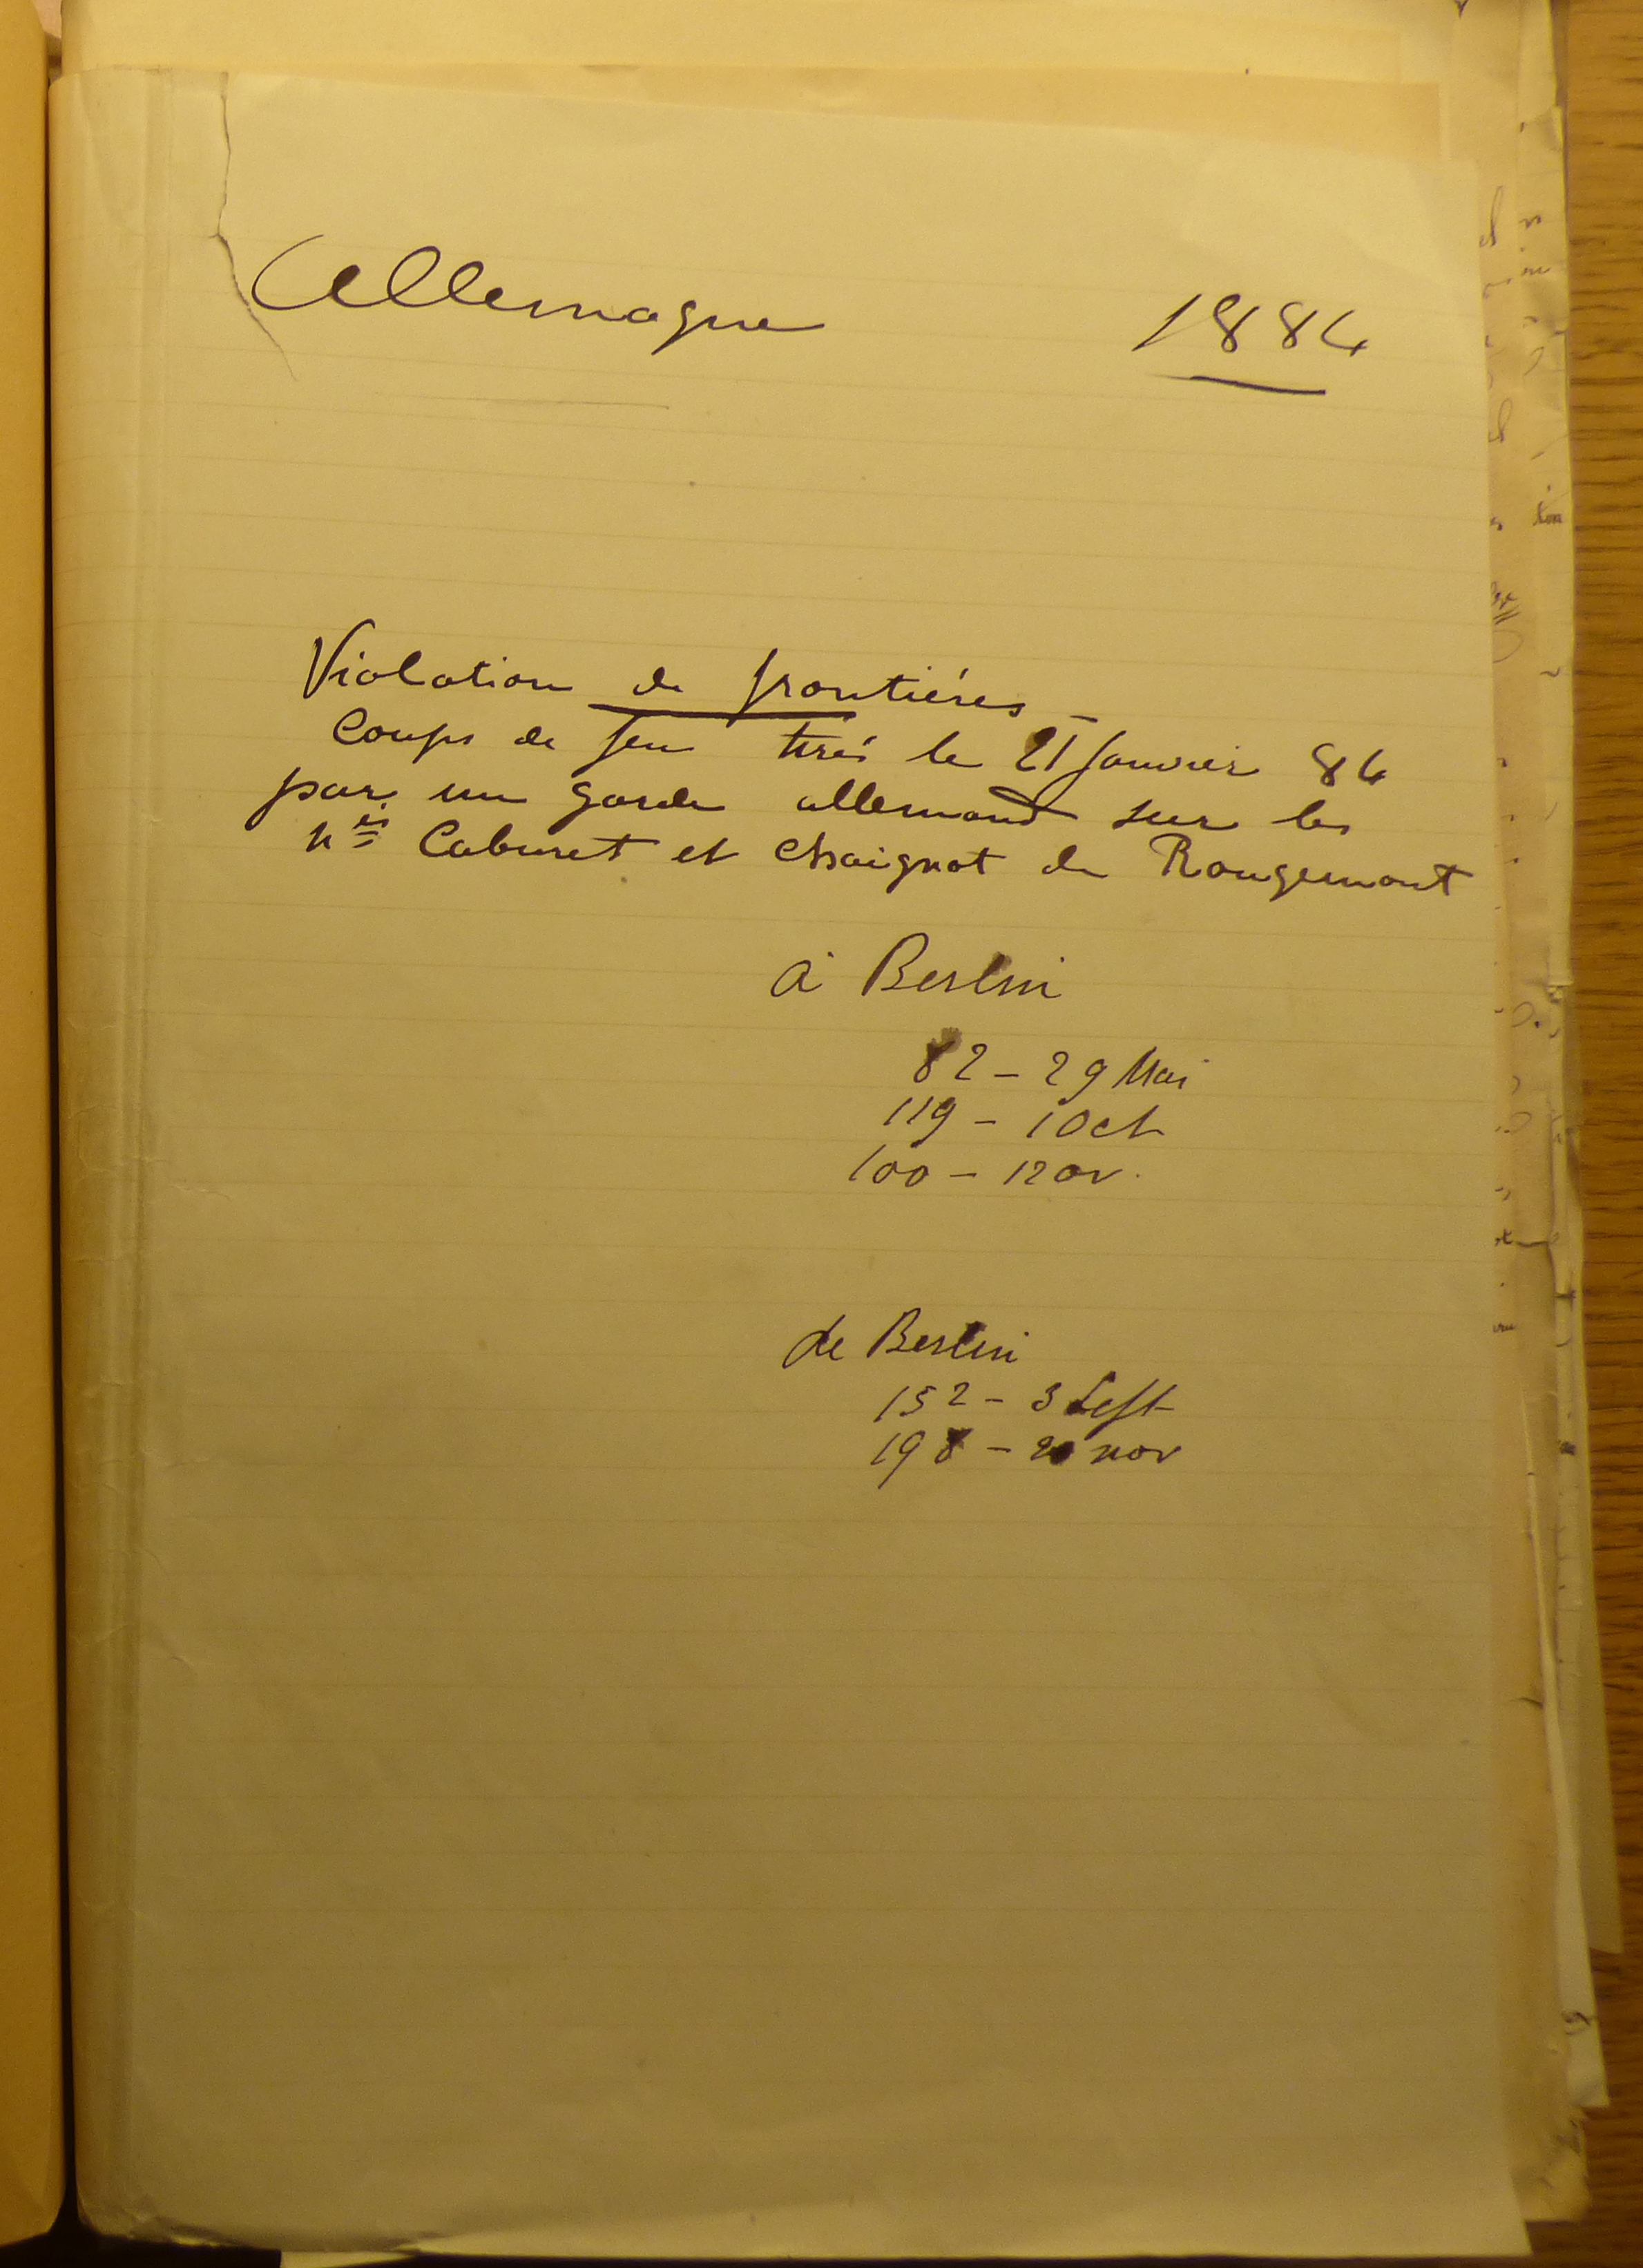 Allemagne 1884
Violation de frontières –
Coups de feu tirés le 21 Janvier 84
par un garde allemand sur les
nés Cabuset et Chaignot de Rougemont
à Berlin
82 – 29 Mai
119 – 1 Oct
100 – 12 ov.
de Berlin
152 – 3 Sept
198 – nov